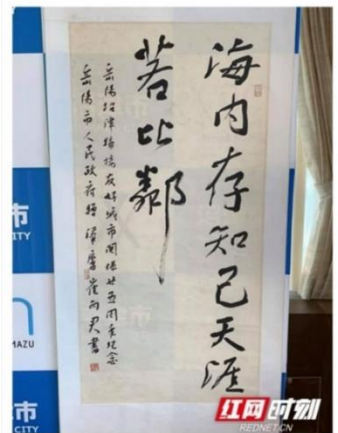 海内存知己天涯
若比鄰
岳陽沼津締結友好城市關係廿五周年紀念
岳陽市人民政府贈
書
市
CITY
MAZU
市
CITY
红网时刻
REDNET.CN